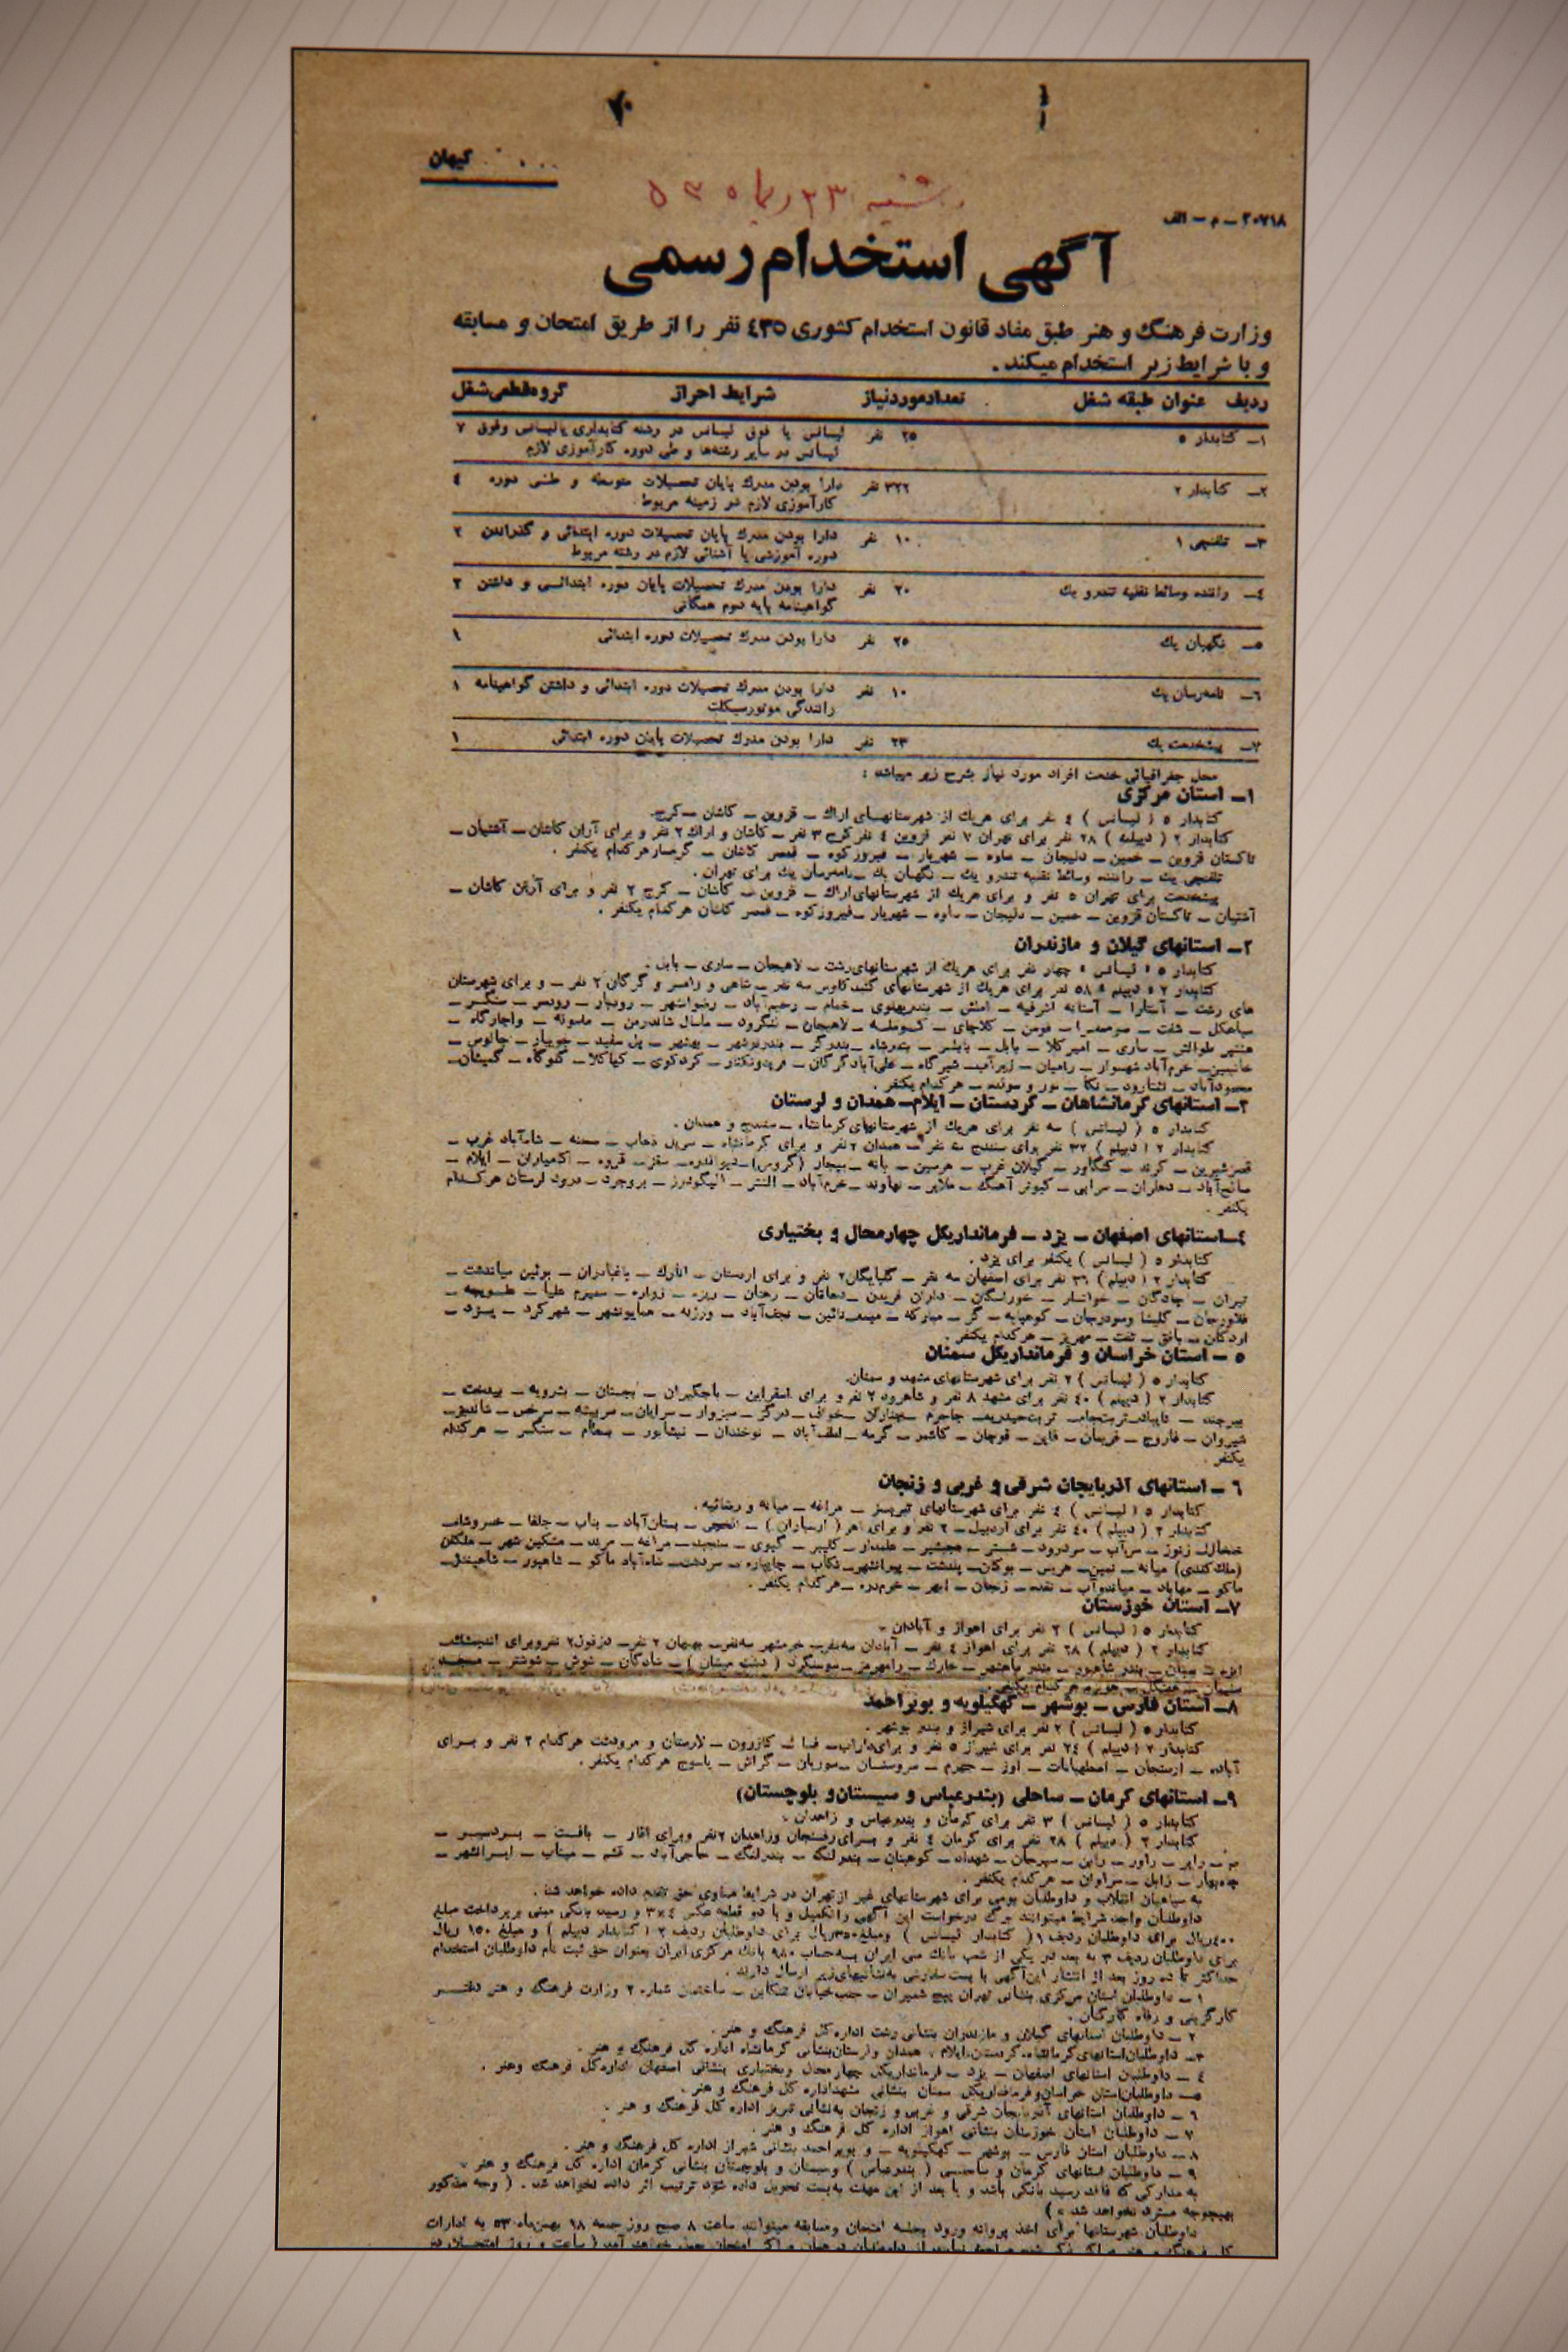 کیهان
۲۰۷۱۸ - م - الف
آگهی استخدام رسمی
وزارت فرهنگ و هنر طبق مفاد قانون استخدام کشوری ۴۳۵ نفر را از طریق امتحان و مسابقه
و با شرایط زیر استخدام میکند .
ردیف عنوان طبقه شغل تعداد مورد نیاز شرایط احراز گروه قطعی شغل
۱ـ کتابدار ۵ ۲۵ نفر لیسانس یا فوق لیسانس در رشته کتابداری یا لیسانس وفوق ۷
لیسانس در سایر رشته‌ها و طی دوره کارآموزی لازم
۲ـ کتابدار ۲ ۳۲۲ نفر دارا بودن مدرك پایان تحصیلات متوسطه و طی دوره ۴
کارآموزی لازم در زمینه مربوط
۳ـ تلفنچی ۱ ۱۰ نفر دارا بودن مدرك پایان تحصیلات دوره ابتدائی و گذراندن ۲
دوره آموزشی یا آشنائی لازم در رشته مربوط
۴ـ راننده وسائط نقلیه تندرو یك ۲۰ نفر دارا بودن مدرك تحصیلات پایان دوره ابتدائی و داشتن ۲
گواهینامه پایه دوم همگانی
۵ـ نگهبان یك ۲۵ نفر دارا بودن مدرك تحصیلات دوره ابتدائی ۱
۶ـ نامه‌رسان یك ۱۰ نفر دارا بودن مدرك تحصیلات دوره ابتدائی و داشتن گواهینامه ۱
رانندگی موتورسیکلت
۷ـ پیشخدمت یك ۲۳ نفر دارا بودن مدرك تحصیلات پایان دوره ابتدائی ۱
محل جغرافیائی خدمت افراد مورد نیاز بشرح زیر میباشد :
۱ـ استان مرکزی
کتابدار ۵ ( لیسانس ) ۴ نفر برای هریك از شهرستانهای اراك ـ قزوین ـ کاشان ـ کرج.
کتابدار ۲ ( دیپلمه ) ۲۸ نفر برای تهران ۷ نفر قزوین ۴ نفر کرج ۳ نفر ـ کاشان و اراك ۲ نفر و برای آران کاشان ـ آشتیان ـ
تاکستان قزوین ـ خمین ـ دلیجان ـ ساوه ـ شهریار ـ فیروزکوه ـ قمصر کاشان ـ گرمسار هرکدام یکنفر .
تلفنچی یك ـ راننده وسائط نقلیه تندرو یك ـ نگهبان یك ـ نامه‌رسان یك برای تهران .
پیشخدمت برای تهران ۵ نفر و برای هریك از شهرستانهای اراك ـ قزوین ـ کاشان ـ کرج ۲ نفر و برای آران کاشان ـ
آشتیان ـ تاکستان قزوین ـ خمین ـ دلیجان ـ ساوه ـ شهریار ـ فیروزکوه ـ قمصر کاشان هرکدام یکنفر .
۲ـ استانهای گیلان و مازندران
کتابدار ۵ « لیسانس » چهار نفر برای هریك از شهرستانهای رشت ـ لاهیجان ـ ساری ـ بابل .
کتابدار ۲ « دیپلم » ۵۸ نفر برای هریك از شهرستانهای گنبد کاوس سه نفر ـ شاهی و رامسر و گرگان ۲ نفر ـ و برای شهرستان
های رشت ـ آستارا ـ آستانه اشرفیه ـ املش ـ بندرپهلوی ـ خمام ـ رحیم‌آباد ـ رضوانشهر ـ رودبار ـ رودسر ـ سنگر ـ
سیاهکل ـ شفت ـ صومعه‌سرا ـ فومن ـ کلاچای ـ کوچصفهان ـ لاهیجان ـ لنگرود ـ ماسال شاندرمن ـ ماسوله ـ واجارگاه ـ
هشتپر طوالش ـ ساری ـ امیرکلا ـ بابل ـ بابلسر ـ بندرشاه ـ بندرگز ـ بندرنوشهر ـ بهشهر ـ پل سفید ـ جویبار ـ چالوس ـ
خرم‌آباد شهسوار ـ رامیان ـ زیرآب ـ شیرگاه ـ علی‌آباد گرگان ـ فریدونکنار ـ کردکوی ـ کیاکلا ـ گلوگاه ـ گمیشان ـ
محمودآباد ـ نشتارود ـ نکا ـ نور و سولده ـ هرکدام یکنفر .
۳ـ استانهای کرمانشاهان ـ کردستان ـ ایلام ـ همدان و لرستان
کتابدار ۵ ( لیسانس ) سه نفر برای هریك از شهرستانهای کرمانشاه ـ سنندج و همدان .
کتابدار ۲ ( دیپلم ) ۳۲ نفر برای سنندج سه نفر ـ همدان ۲ نفر و برای کرمانشاه ـ سرپل ذهاب ـ صحنه ـ شاه‌آباد غرب ـ
قصرشیرین ـ کرند ـ کنگاور ـ گیلان غرب ـ هرسین ـ بانه ـ بیجار (گروس) ـ دیواندره ـ سقز ـ قروه ـ کامیاران ـ ایلام ـ
صالح‌آباد ـ دهلران ـ سرابی ـ کبوتر آهنگ ـ ملایر ـ نهاوند ـ خرم‌آباد ـ الشتر ـ الیگودرز ـ بروجرد ـ درود لرستان هرکدام
یکنفر .
۴ـ استانهای اصفهان ـ یزد ـ فرمانداریکل چهارمحال و بختیاری
کتابدار ۵ ( لیسانس ) یکنفر برای یزد .
کتابدار ۲ ( دیپلم ) ۳۶ نفر برای اصفهان سه نفر ـ گلپایگان ۲ نفر و برای اردستان ـ انارك ـ باغبادران ـ بوئین میاندشت ـ
تیران ـ چادگان ـ خوانسار ـ خوراسگان ـ داران فریدن ـ دهاقان ـ زواره ـ سمیرم علیا ـ
فلاورجان ـ کلیشا وسودرجان ـ کوهپایه ـ گز ـ مبارکه ـ میمه ـ نائین ـ نجف‌آباد ـ ورزنه ـ همایونشهر ـ شهرکرد ـ یزد ـ
اردکان ـ بافق ـ تفت ـ مهریز ـ هرکدام یکنفر .
۵ ـ استان خراسان و فرمانداریکل سمنان
کتابدار ۵ ( لیسانس ) ۲ نفر برای شهرستانهای مشهد و سمنان.
کتابدار ۲ ( دیپلم ) ۴۰ نفر برای مشهد ۸ نفر و شاهرود ۲ نفر و برای اسفراین ـ باجگیران ـ بجستان ـ بشرویه ـ بیدخت ـ
بیرجند ـ تایباد ـ تربت‌جام ـ تربت‌حیدریه ـ جاجرم ـ چناران ـ خواف ـ درگز ـ سبزوار ـ سرایان ـ سربیشه ـ سرخس ـ شاندیز ـ
شیروان ـ فاروج ـ فریمان ـ قاین ـ قوچان ـ کاشمر ـ گرمه ـ لطف‌آباد ـ نوخندان ـ نیشابور ـ بسطام ـ سنگسر ـ هرکدام
یکنفر .
۶ ـ استانهای آذربایجان شرقی و غربی و زنجان
کتابدار ۵ ( لیسانس ) ۴ نفر برای شهرستانهای تبریز ـ مراغه ـ میانه و رضائیه .
کتابدار ۲ ( دیپلم ) ۴۰ نفر برای اردبیل ـ ۲ نفر و برای اهر ( ارسباران ) ـ بستان‌آباد ـ بناب ـ جلفا ـ خسروشاه ـ
خلخال ـ زنوز ـ سراب ـ سردرود ـ شبستر ـ عجبشیر ـ علمدار ـ کلیبر ـ گیوی ـ مراغه ـ مرند ـ مشکین شهر ـ ملکان
(ملك کندی) میانه ـ نمین ـ هریس ـ بوکان ـ پلدشت ـ پیرانشهر ـ تکاب ـ چایپاره ـ سردشت ـ شاه‌آباد ماکو ـ شاهپور ـ شاهیندژ ـ
ماکو ـ مهاباد ـ میاندوآب ـ نقده ـ زنجان ـ ابهر ـ خرمدره ـ هرکدام یکنفر .
۷ـ استان خوزستان
کتابدار ۵ ( لیسانس ) ۲ نفر برای اهواز و آبادان .
کتابدار ۲ ( دیپلم ) ۲۸ نفر برای اهواز ۴ نفر ـ آبادان سه نفر ـ خرمشهر سه نفر ـ بهبهان ۲ نفر ـ دزفول ۲ نفر وبرای اندیمشك ـ
بندر شاهپور ـ بندر ماهشهر ـ خارك ـ رامهرمز ـ سوسنگرد ( دشت میشان ) ـ شادگان ـ شوش ـ شوشتر ـ مسجد
سلیمان ـ هفتگل ـ هویزه هرکدام یکنفر .
۸ـ استان فارس ـ بوشهر ـ کهگیلویه و بویراحمد
کتابدار ۵ ( لیسانس ) ۲ نفر برای شیراز و بندر بوشهر .
کتابدار ۲ ( دیپلم ) ۲۴ نفر برای شیراز ۵ نفر و برای داراب ـ فسا ـ کازرون ـ لارستان و مرودشت هرکدام ۲ نفر و برای
آباده ـ ارسنجان ـ اصطهبانات ـ اوز ـ جهرم ـ سروستان ـ سوریان ـ گراش ـ یاسوج هرکدام یکنفر .
۹ـ استانهای کرمان ـ ساحلی (بندرعباس و سیستان و بلوچستان)
کتابدار ۵ ( لیسانس ) ۳ نفر برای کرمان و بندرعباس و زاهدان .
کتابدار ۲ ( دیپلم ) ۲۸ نفر برای کرمان ۴ نفر و برای رفسنجان وزاهدان ۲نفر وبرای انار ـ بافت ـ بردسیر ـ
بم ـ رابر ـ راور ـ راین ـ سیرجان ـ شهداد ـ کوهبنان ـ بندرلنگه ـ حاجی‌آباد ـ قشم ـ میناب ـ ایرانشهر ـ
چاه‌بهار ـ زابل ـ سراوان ـ هرکدام یکنفر .
به سپاهیان انقلاب و داوطلبان بومی برای شهرستانهای غیر ازتهران در شرایط مساوی حق تقدم داده خواهد شد .
داوطلبان واجد شرایط میتوانند برگ درخواست این آگهی را تکمیل و با دو قطعه عکس ۴×۳ و رسید بانکی مبنی برپرداخت مبلغ
۴۰۰ریال برای داوطلبان ردیف ۱( کتابدار لیسانس ) ومبلغ ۳۵۰ریال برای داوطلبان ردیف ۲ ( کتابدار دیپلم ) و مبلغ ۱۵۰ ریال
برای داوطلبان ردیف ۳ به بعد در یکی از شعب بانك ملی ایران بحساب ۹۸۰ بانك مرکزی ایران بعنوان حق ثبت نام داوطلبان استخدام
حداکثر تا ده روز بعد از انتشار این‌آگهی با پست سفارشی به‌نشانیهای زیر ارسال دارند .
۱ ـ داوطلبان استان مرکزی بنشانی تهران پیچ شمیران ـ جنب خیابان تنکابن ـ ساختمان شماره ۲ وزارت فرهنگ و هنر دفتر
کارگزینی و رفاه کارکنان .
۲ ـ داوطلبان استانهای گیلان و مازندران بنشانی رشت اداره‌کل فرهنگ و هنر .
۳ـ داوطلبان استانهای کرمانشاه ـ کردستان ، ایلام ، همدان ولرستان بنشانی کرمانشاه اداره کل فرهنگ و هنر .
۴ ـ داوطلبان استانهای اصفهان ـ یزد ـ فرمانداریکل چهارمحال وبختیاری بنشانی اصفهان اداره‌کل فرهنگ وهنر .
۵ـ داوطلبان‌استان خراسان‌وفرمانداریکل سمنان بنشانی مشهد اداره کل فرهنگ و هنر .
۶ ـ داوطلبان استانهای آذربایجان شرقی و غربی و زنجان به‌نشانی تبریز اداره کل فرهنگ و هنر .
۷ ـ داوطلبان استان خوزستان بنشانی اهواز اداره کل فرهنگ و هنر .
۸ـ داوطلبان استان فارس ـ بوشهر ـ کهگیلویه ـ و بویراحمد بنشانی شیراز اداره کل فرهنگ و هنر .
۹ ـ داوطلبان استانهای کرمان و ساحلی ( بندرعباس ) وسیستان و بلوچستان بنشانی کرمان اداره کل فرهنگ و هنر .
به مدارکی که فاقد رسید بانکی باشد و یا بعد از این مهلت به‌پست تحویل داده شود ترتیب اثر داده نخواهد شد . ( وجه مذکور
بهیچوجه مسترد نخواهد شد . )
داوطلبان شهرستانها برای اخذ پروانه ورود بجلسه امتحان ومسابقه میتوانند ساعت ۸ صبح روز جمعه ۱۸ بهمن‌ماه ۵۳ به ادارات